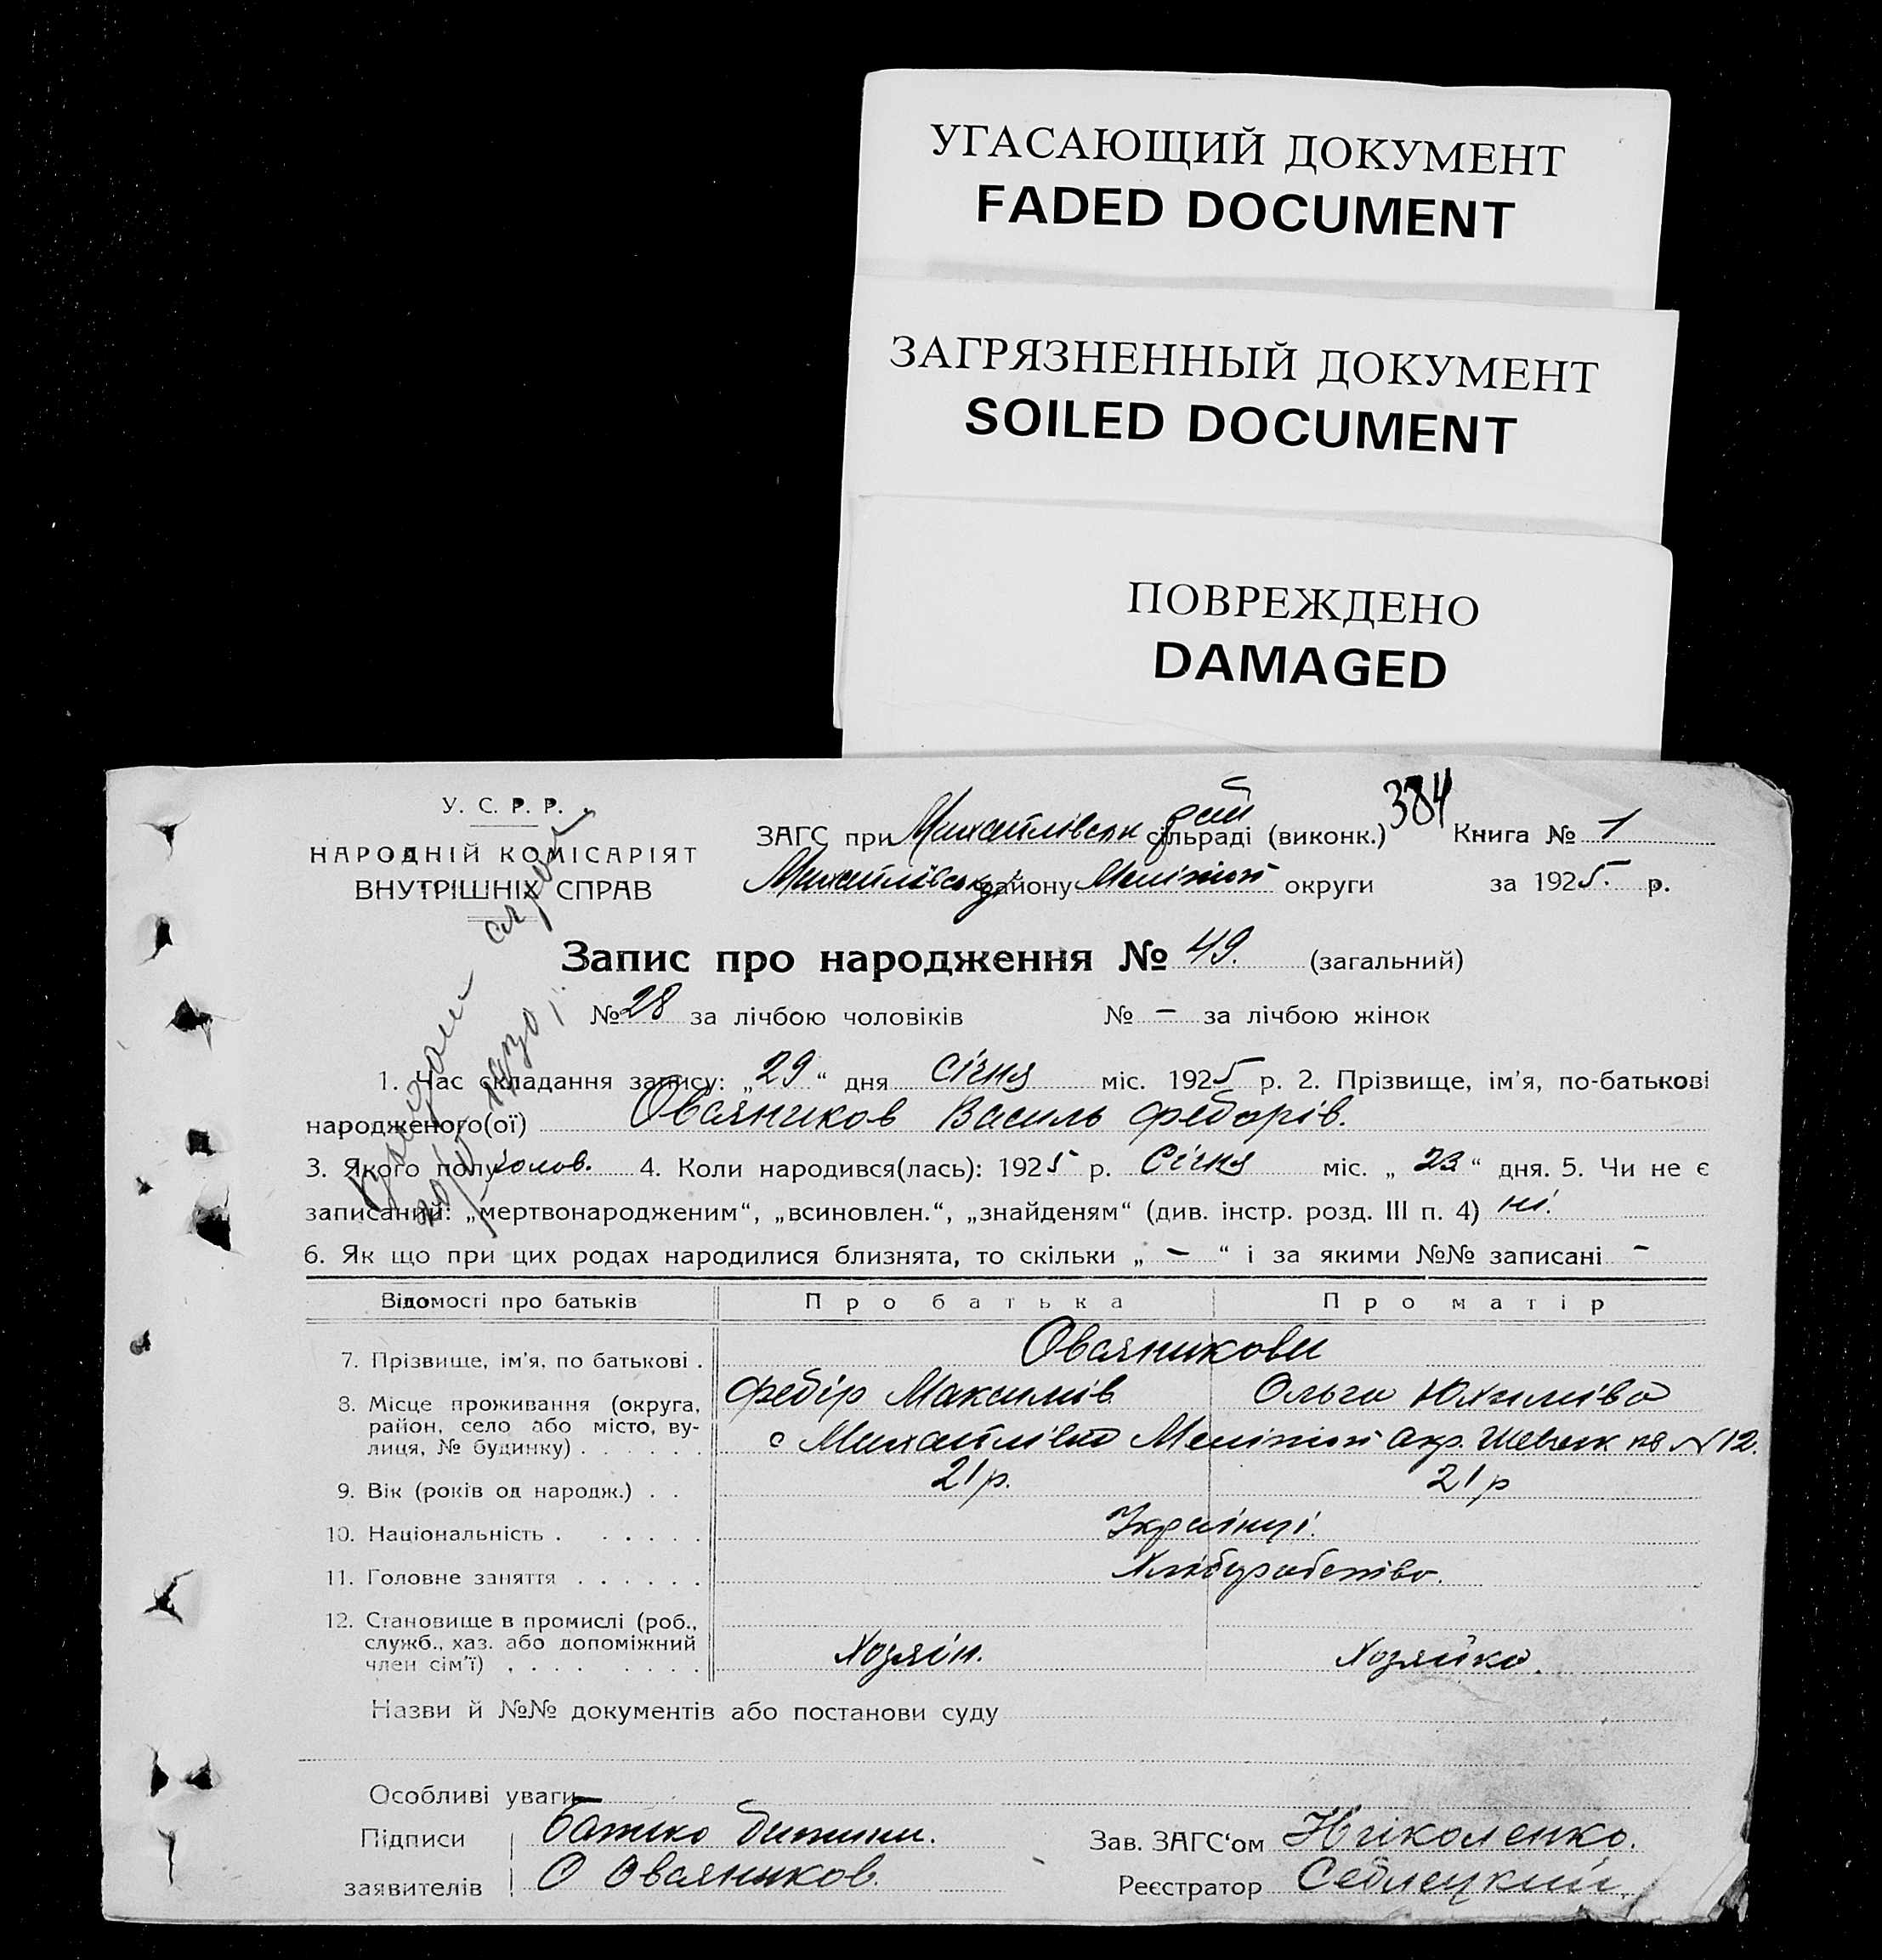 УГАСАЮЩИЙ ДОКУМЕНТ
FADED DOCUMENT
ЗАГРЯЗНЕННЫЙ ДОКУМЕНТ
SOILED DOCUMENT
ПОВРЕЖДЕНО
DAMAGED
384
У. С. Р. Р.
НАРОДНІЙ КОМІСАРІЯТ
ВНУТРІШНІХ СПРАВ
ЗАГС при Михайлівськ рай сільраді (виконк.) Книга № 1
Михайлівськ району Меліток округи за 1925 р.
Запис про народження № 49. (загальний)
№ 28 за лічбою чоловіків № – за лічбою жінок
1. Час складання запису: „29“ дня Січня міс. 1925 р. 2. Прізвище, ім'я, по-батькові
народженого(ої) Овсяников Василь Федорів.
3. Якого полу чолов. 4. Коли народився(лась): 1925 р. Січня міс. „23“ дня. 5. Чи не є
записаний: „мертвонародженим“, „всиновлен.“, „знайденям“ (див. інстр. розд. III п. 4) ні.
6. Як що при цих родах народилися близнята, то скільки „ – “ і за якими №№ записані –
Відомості про батьків Про батька Про матір
7. Прізвище, ім'я, по батькові . Овсяникови
Федір Максимів Ольга Юхимівa
8. Місце проживання (округа, район, село або місто, вулиця, № будинку) . . . . . . с Михайлівка Меліток окр. Шевченк № 12.
9. Вік (років од народж.) . . 21 р. 21 р
10. Національність . . . . . . Українці.
11. Головне заняття . . . . . . Хліборобство.
12. Становище в промислі (роб., служб., хаз. або допоміжний член сім'ї) . . . . . . . . Хозяїн. Хозяйка.
Назви й №№ документів або постанови суду
Особливі уваги
Підписи Батько дитини. Зав. ЗАГС'ом Ніколенко.
заявителів О Овсяников. Реєстратор Седлецкий